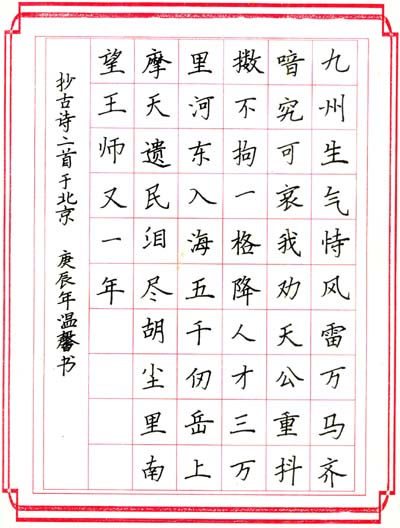 九州生气恃风雷万马齐
喑究可哀我劝天公重抖
擞不拘一格降人才三万
里河东入海五千仞岳上
摩天遗民泪尽胡尘里南
望王师又一年
抄古诗二首于北京 庚辰年温馨书